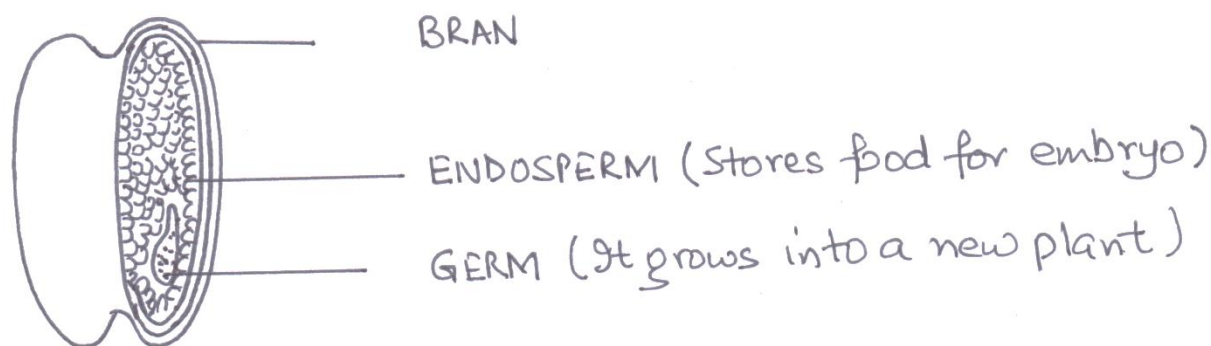 BRAN
ENDOSPERM (Stores food for embryo)
GERM (It grows into a new plant)